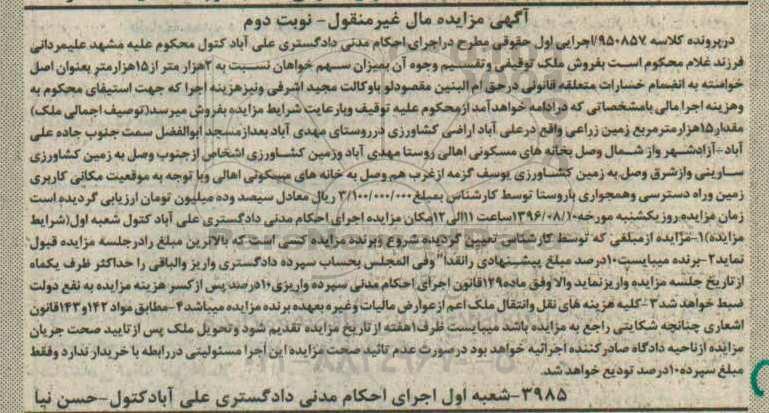 آگهی مزایده مال غیرمنقول- نوبت دوم
درپرونده کلاسه ۹۵۰۸۵۷/اجرایی اول حقوقی مطرح دراجرای احکام مدنی دادگستری علی آباد کتول محکوم علیه مشهد علیمردانی
فرزند غلام محکوم است بفروش ملک توقیفی وتقسیم وجوه آن بمیزان سهم خواهان نسبت به ۲هزار متر از۱۵هزارمتر بعنوان اصل
خواسته به انضمام خسارات متعلقه قانونی درحق ام البنین مقصودلو باوکالت مجید اشرفی ونیزهزینه اجرا که جهت استیفای محکوم به
وهزینه اجرا مالی بامشخصاتی که درادامه خواهدآمد ازمحکوم علیه توقیف وبارعایت شرایط مزایده بفروش میرسد(توصیف اجمالی ملک)
مقدار۱۵هزارمترمربع زمین زراعی واقع درعلی آباد اراضی کشاورزی درروستای مهدی آباد بعدازمسجد ابوالفضل سمت جنوب جاده علی
آباد-آزادشهر واز شمال وصل بخانه های مسکونی اهالی روستا مهدی آباد وزمین کشاورزی اشخاص ازجنوب وصل به زمین کشاورزی
سارینی وازشرق وصل به زمین کشاورزی یوسف گزمه ازغرب هم وصل به خانه های مسکونی اهالی وبا توجه به موقعیت مکانی کاربری
زمین وراه دسترسی وهمجواری باروستا توسط کارشناس بمبلغ۳/۱۰۰/۰۰۰/۰۰۰ ریال معادل سیصد وده میلیون تومان ارزیابی گردیده است
زمان مزایده روز یکشنبه مورخه۱۳۹۶/۰۸/۱۰ساعت ۱۱الی۱۲مکان مزایده اجرای احکام مدنی دادگستری علی آباد کتول شعبه اول(شرایط
مزایده)۱-مزایده ازمبلغی که توسط کارشناس تعیین گردیده شروع وبرنده مزایده کسی است که بالاترین مبلغ رادرجلسه مزایده قبول
نماید۲-برنده میبایست۱۰درصد مبلغ پیشنهادی رانقدا" وفی المجلس بحساب سپرده دادگستری واریز والباقی را حداکثر ظرف یکماه
ازتاریخ جلسه مزایده واریزنماید والا وفق ماده۱۲۹قانون اجرای احکام مدنی سپرده واریزی۱۰درصد پس ازکسر هزینه مزایده به نفع دولت
ضبط خواهد شد۳-کلیه هزینه های نقل وانتقال ملک اعم ازعوارض مالیات وغیره بعهده برنده مزایده میباشد۴-مطابق مواد ۱۴۲و۱۴۳قانون
اشعاری چنانچه شکایتی راجع به مزایده باشد میبایست ظرف۱هفته از تاریخ مزایده تقدیم شود وتحویل ملک پس ازتایید صحت جریان
مزایده ازناحیه دادگاه صادرکننده اجرائیه خواهد بود درصورت عدم تائید صحت مزایده این اجرا مسئولیتی دررابطه با خریدار ندارد وفقط
مبلغ سپرده۱۰درصد تودیع خواهد شد.
۳۹۸۵-شعبه اول اجرای احکام مدنی دادگستری علی آبادکتول-حسن نیا